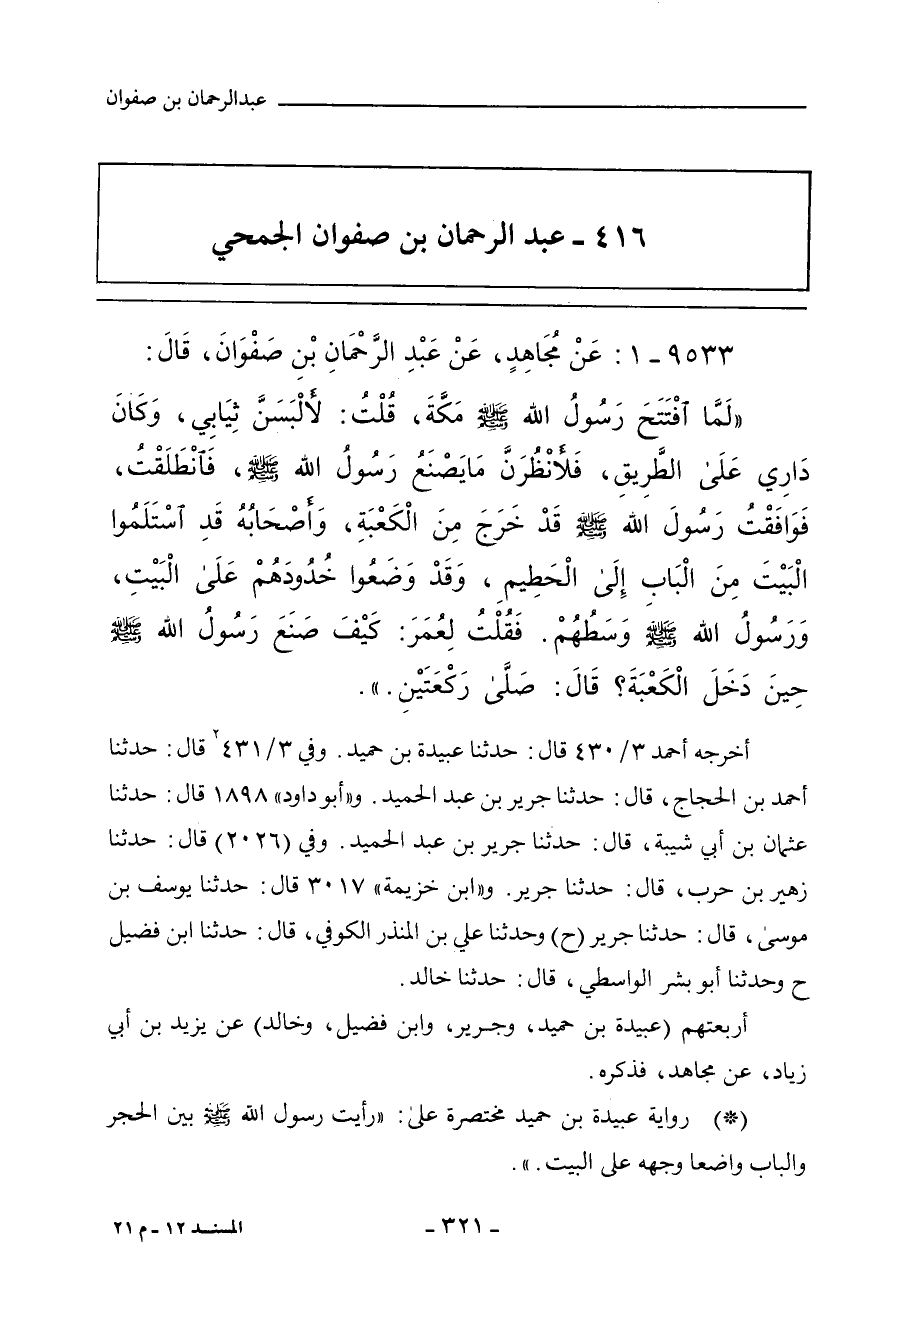 عبدالرحمان بن صفوان
٤١٦ - عبد الرحمان بن صفوان الجمحي
٩٥٣٣ - ١ : عَنْ مُجَاهِدٍ، عَنْ عَبْدِ الرَّحْمَانِ بْنِ صَفْوَانَ، قَالَ:
«لَمَّا ٱفْتَتَحَ رَسُولُ الله ﷺ مَكَّةَ، قُلْتُ: لَأَلْبَسَنَّ ثِيَابي، وَكَانَ
دَارِي عَلَىٰ الطَّرِيقِ، فَلَأَنْظُرَنَّ مَايَصْنَعُ رَسُولُ الله ﷺ، فَٱنْطَلَقْتُ،
فَوَافَقْتُ رَسُولَ الله ﷺ قَدْ خَرَجَ مِنَ الْكَعْبَةِ، وَأَصْحَابُهُ قَدِ ٱسْتَلَمُوا
الْبَيْتَ مِنَ الْبَابِ إِلَىٰ الْحَطِيمِ، وَقَدْ وَضَعُوا خُدُودَهُمْ عَلَىٰ الْبَيْتِ،
وَرَسُولُ الله ﷺ وَسَطُهُمْ. فَقُلْتُ لِعُمَرَ: كَيْفَ صَنَعَ رَسُولُ الله ﷺ
حِينَ دَخَلَ الْكَعْبَةَ؟ قَالَ: صَلَّىٰ رَكْعَتَيْنِ.».
أخرجه أحمد ٣/ ٤٣٠ قال: حدثنا عبيدة بن حميد. وفي ٣/ ٤٣١٢ قال: حدثنا
أحمد بن الحجاج، قال: حدثنا جرير بن عبد الحميد. و«أبو داود» ١٨٩٨ قال: حدثنا
عثمان بن أبي شيبة، قال: حدثنا جرير بن عبد الحميد. وفي (٢٠٢٦) قال: حدثنا
زهير بن حرب، قال: حدثنا جرير. و«ابن خزيمة» ٣٠١٧ قال: حدثنا يوسف بن
موسىٰ، قال: حدثنا جرير (ح) وحدثنا علي بن المنذر الكوفي، قال: حدثنا ابن فضيل
ح وحدثنا أبو بشر الواسطي، قال: حدثنا خالد.
أربعتهم (عبيدة بن حميد، وجرير، وابن فضيل، وخالد) عن يزيد بن أبي
زياد، عن مجاهد، فذكره.
(*) رواية عبيدة بن حميد مختصرة علىٰ: «رأيت رسول الله ﷺ بين الحجر
والباب واضعا وجهه على البيت.».
- ٣٢١ -
المسند ١٢ - م ٢١